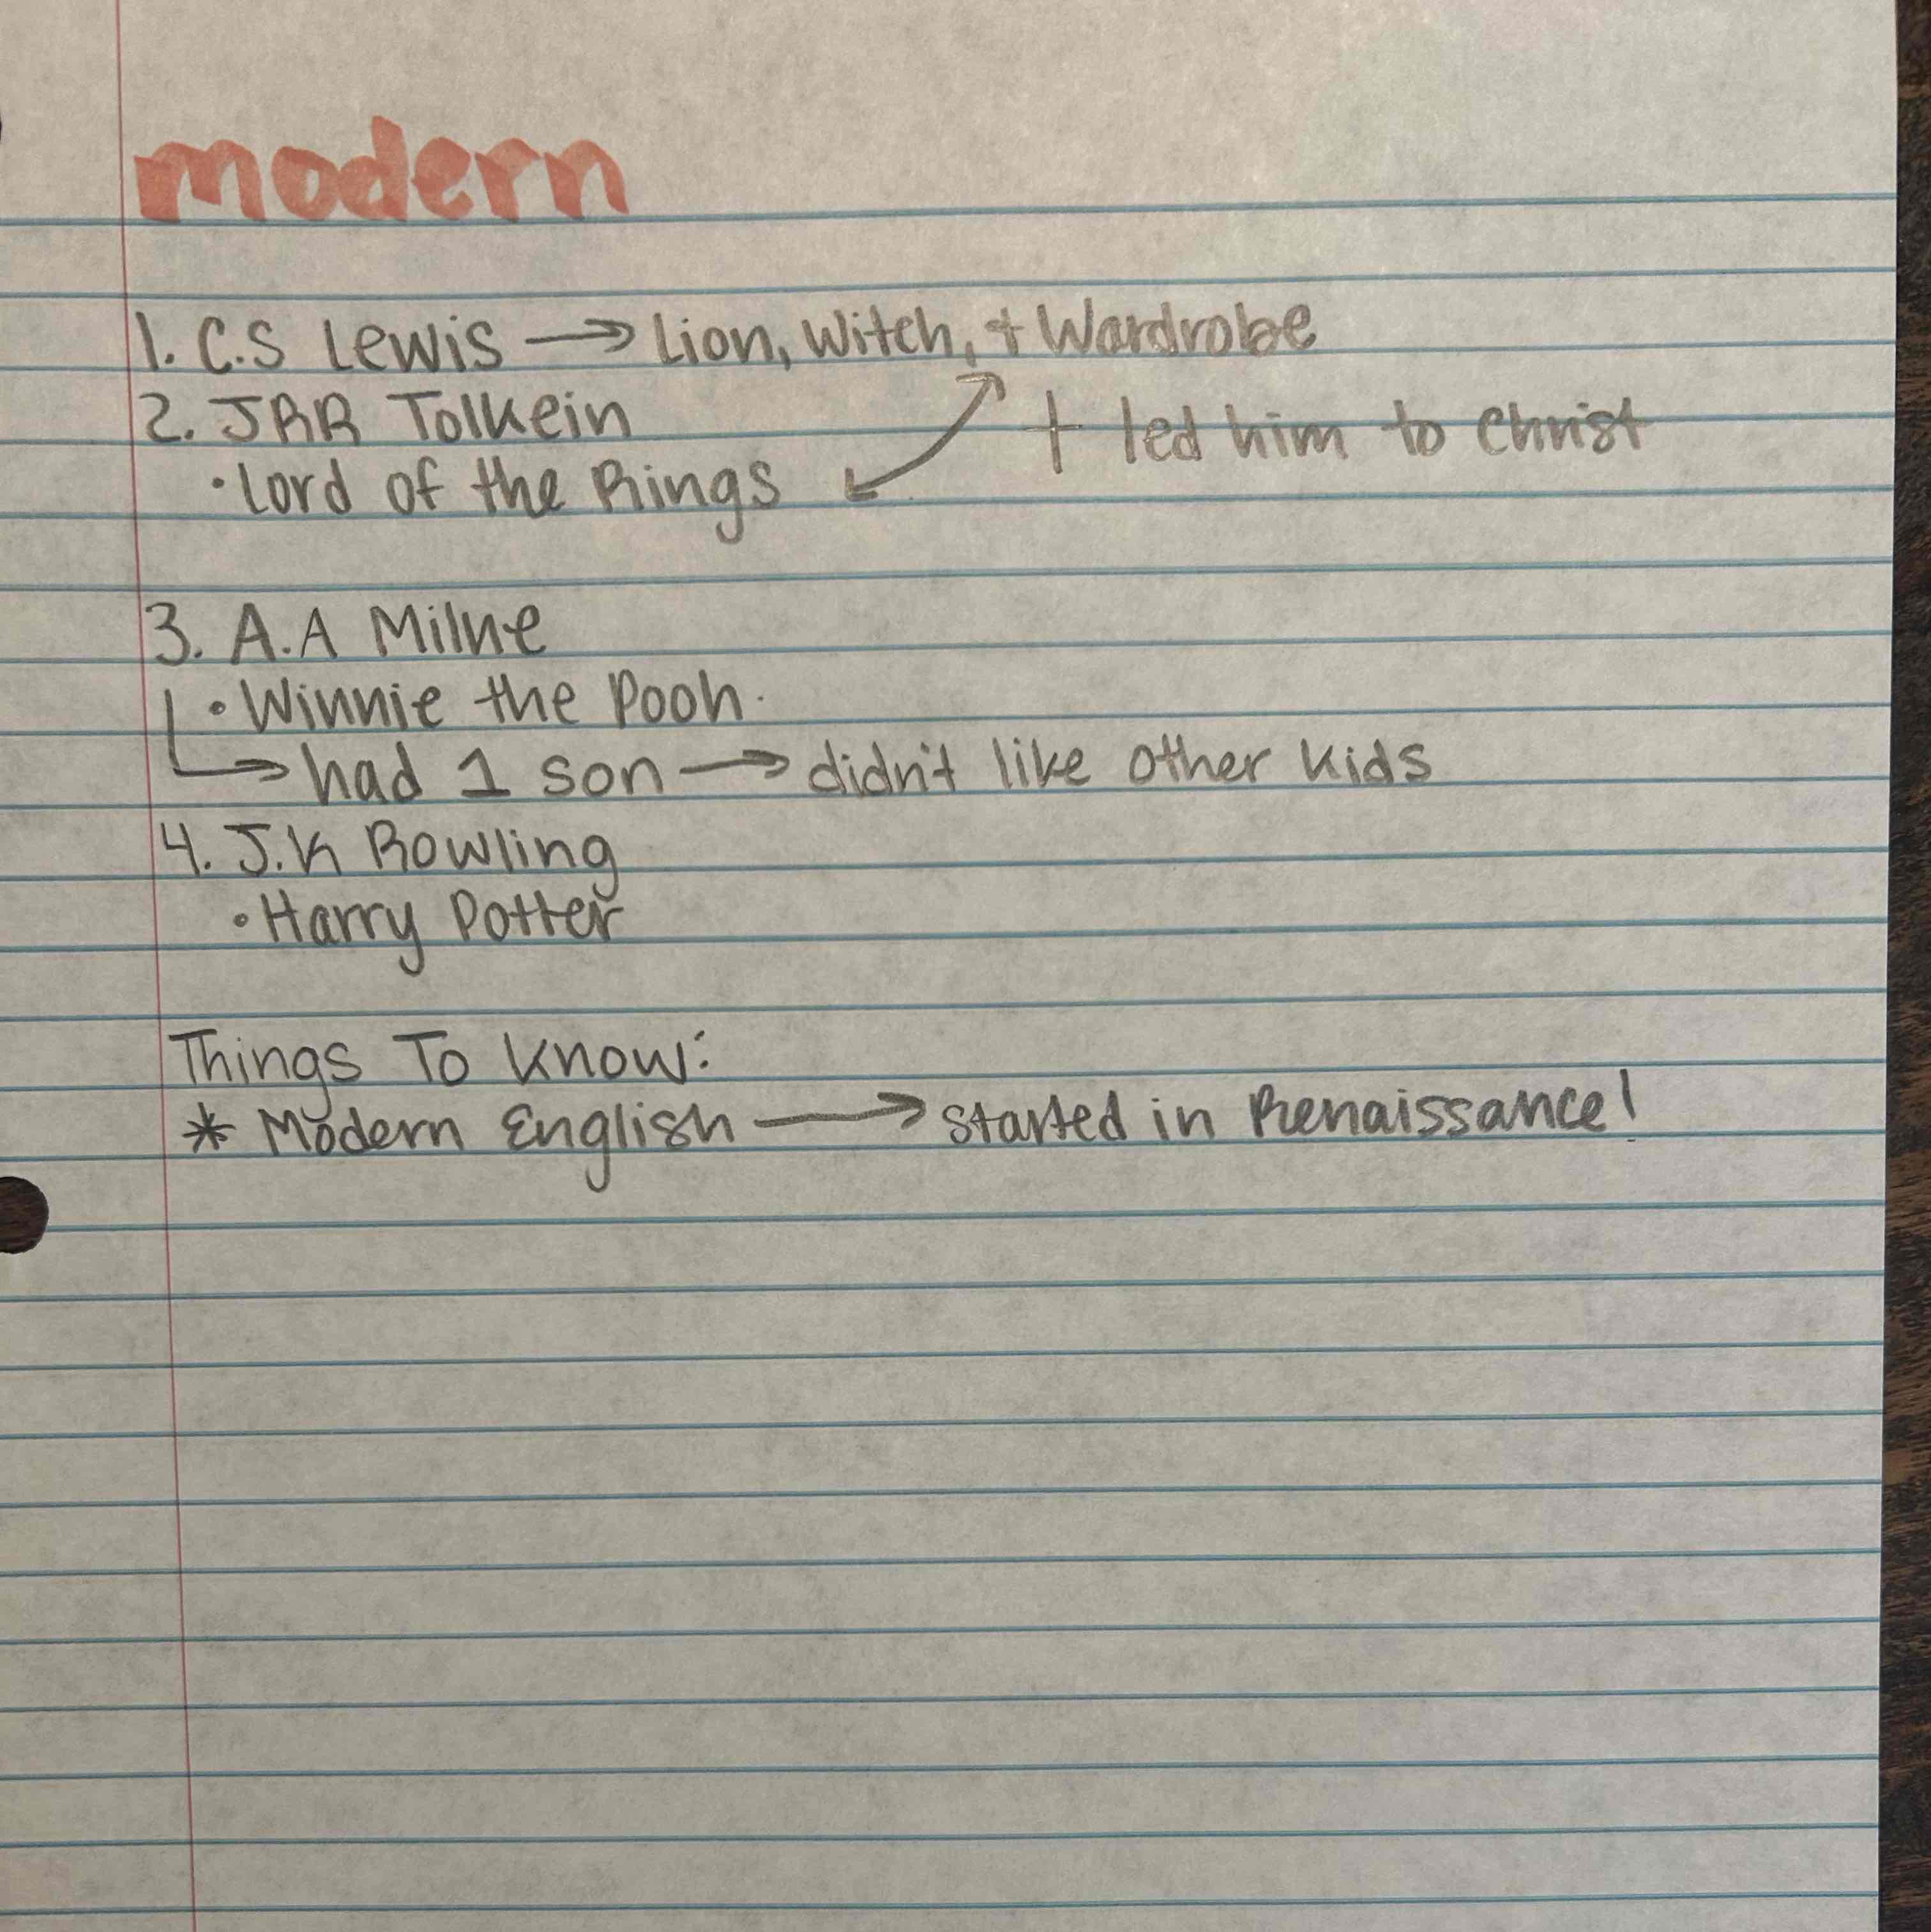 modern
1. C.S Lewis → Lion, Witch, + Wardrobe
2. JRR Tolkein
† led him to Christ
• Lord of the Rings
3. A.A Milne
• Winnie the Pooh.
↳ had 1 son → didn't like other kids
4. J.K Rowling
• Harry Potter
Things To Know:
* Modern English → started in Renaissance!